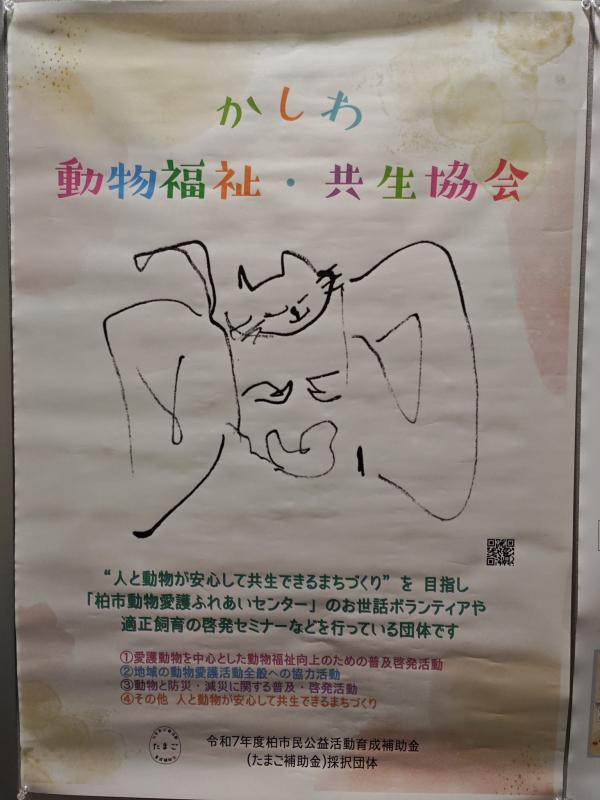 かしわ
動物福祉・共生協会
“人と動物が安心して共生できるまちづくり”を 目指し
「柏市動物愛護ふれあいセンター」のお世話ボランティアや
適正飼育の啓発セミナーなどを行っている団体です
①愛護動物を中心とした動物福祉向上のための普及啓発活動
②地域の動物愛護活動全般への協力活動
③動物と防災・減災に関する普及・啓発活動
④その他 人と動物が安心して共生できるまちづくり
たまご
令和7年度柏市民公益活動育成補助金
(たまご補助金)採択団体